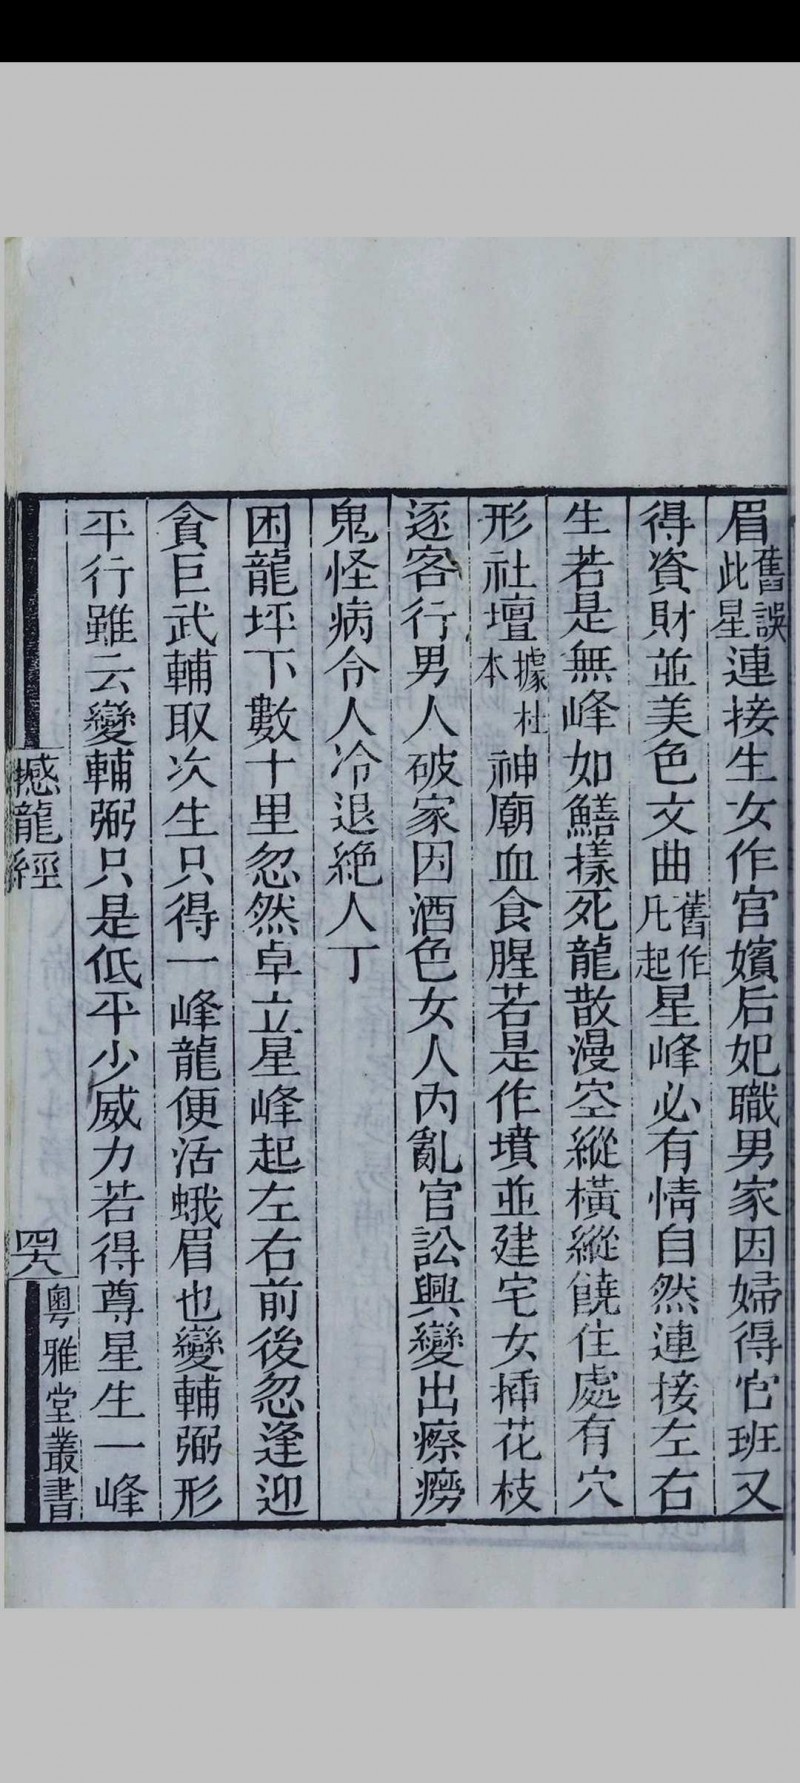 眉舊誤此星連接生女作宮嬪后妃職男家因婦得官班又
得資財並美色文曲舊作凡起星峰必有情自然連接左右
生若是無峰如鱔㨾死龍散漫空縱橫縱饒住處有穴
形社壇據杜本神廟血食腥若是作墳並建宅女揷花枝
逐客行男人破家因酒色女人內亂官訟興變出瘵癆
鬼怪病令人冷退絶人丁
困龍坪下數十里忽然卓立星峰起左右前後忽逢迎
貪巨武輔取次生只得一峰龍便活蛾眉也變輔弼形
平行雖云變輔弼只是低平少威力若得尊星生一峰
撼龍經
四八
粵雅堂叢書